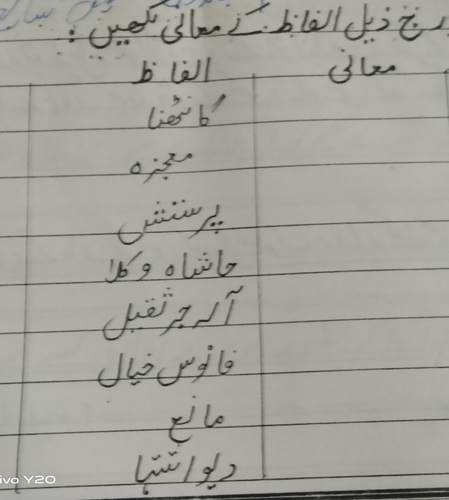 درج ذیل الفاظ کے معانی لکھیں:
الفاظ معانی
گانٹھنا
معجزہ
پرستش
حاشاہ وکلا
آلہ جر ثقیل
فانوس خیال
مانع
دیوانتہا
vivo Y20